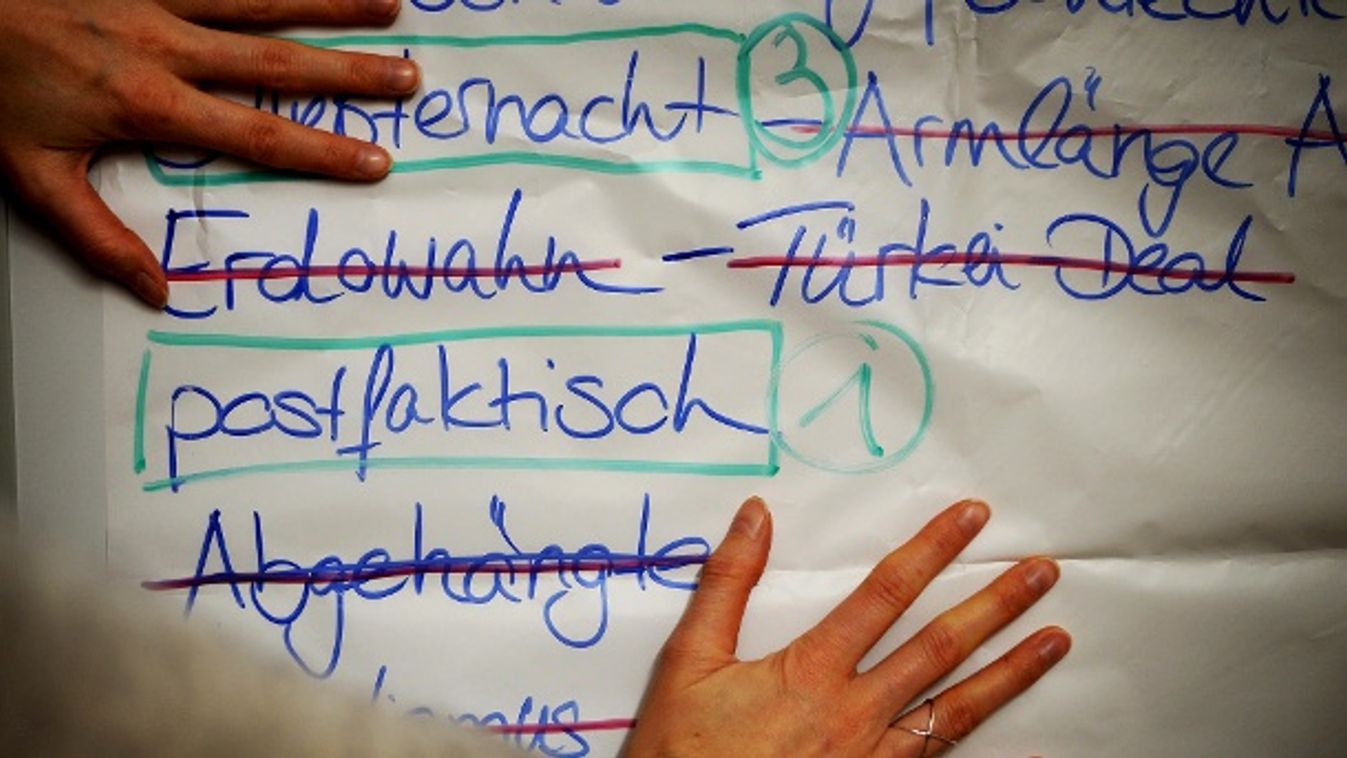 Silvesternacht 3 – Armlänge A
Erdowahn – Türkei Deal
postfaktisch 1
Abgehängte